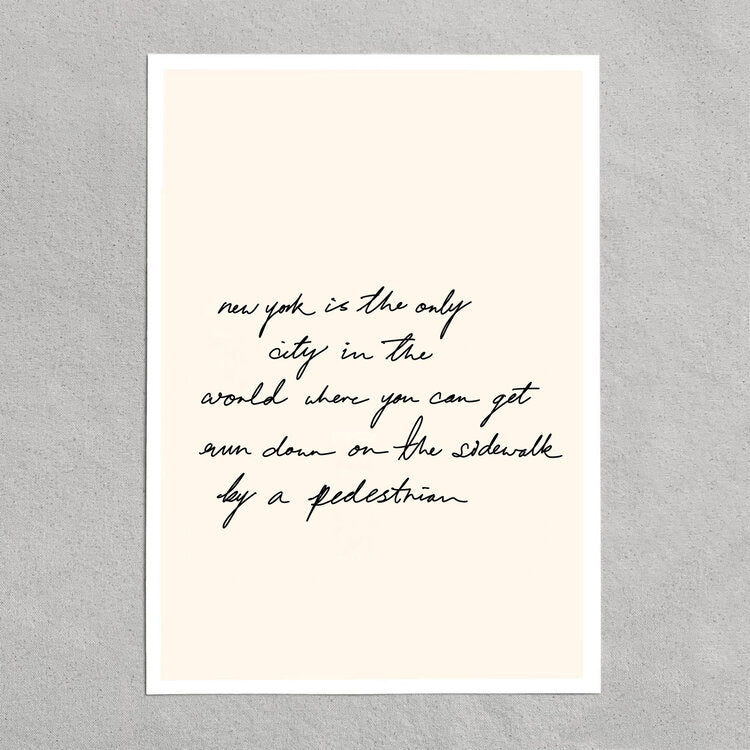 new york is the only
city in the
world where you can get
run down on the sidewalk
by a pedestrian